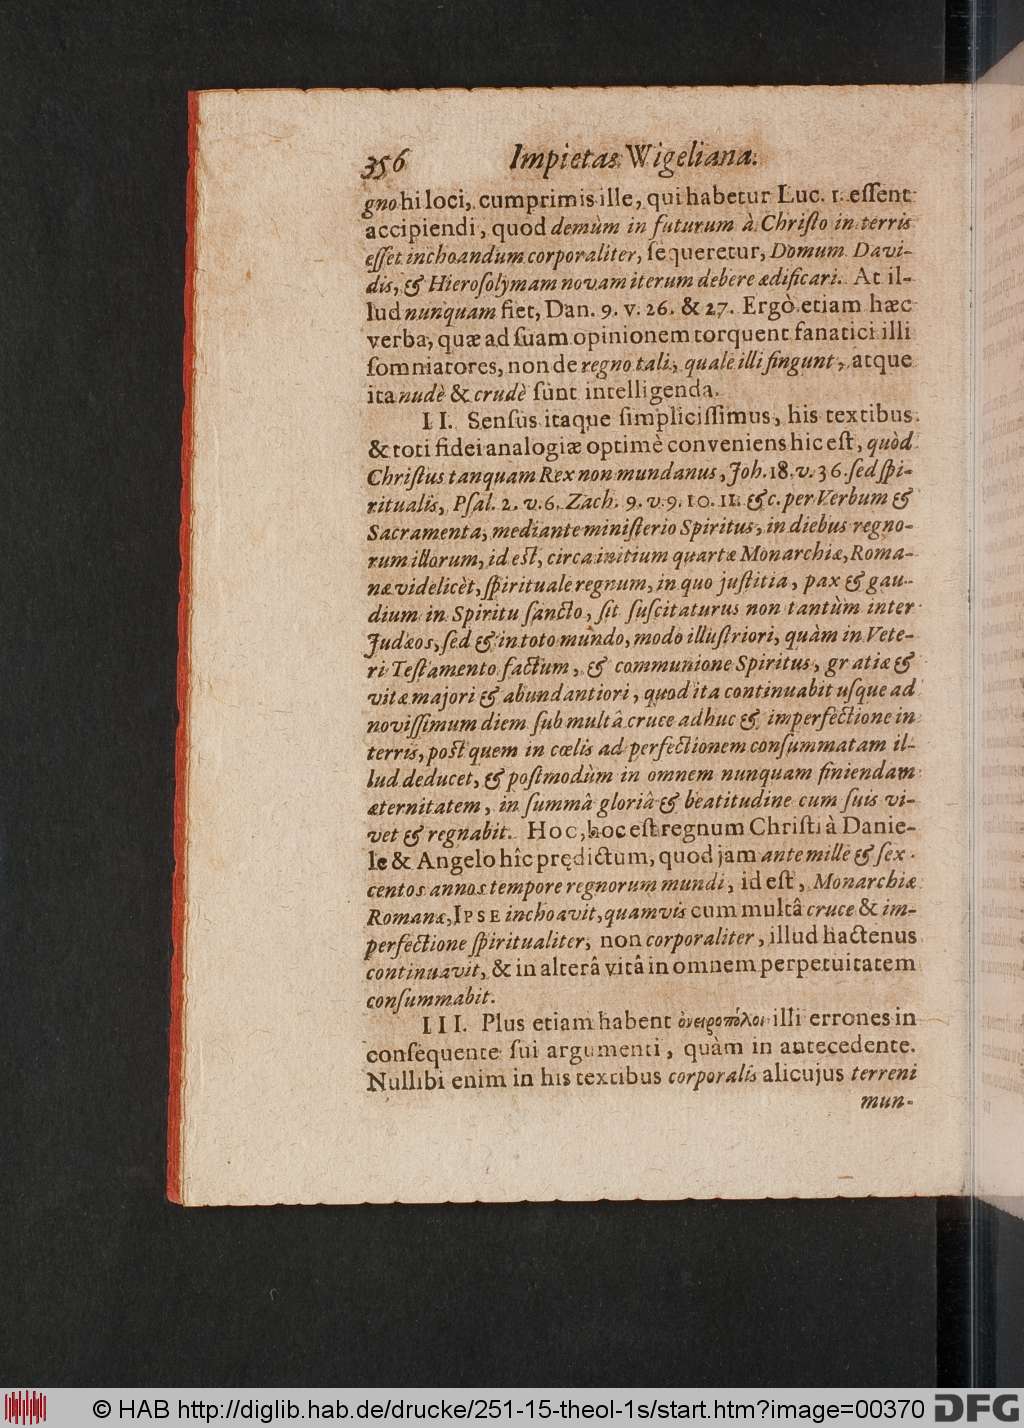 356 Impietas Wigeliana.
gno hi loci, cumprimis ille, qui habetur Luc. 1. eſſent
accipiendi, quod demùm in futurum à Chriſto in terris
eſſet inchoandum corporaliter, ſequeretur, Domum Davi-
dis, & Hieroſolymam novam iterum debere ædificari. At il-
lud nunquam fiet, Dan. 9. v. 26. & 27. Ergò etiam hæc
verba, quæ ad ſuam opinionem torquent fanatici illi
ſomniatores, non de regno tali, quale illi fingunt, atque
ita nudè & crudè ſunt intelligenda.
II. Senſus itaque ſimpliciſſimus, his textibus
& toti fidei analogiæ optimè conveniens hic eſt, quòd
Chriſtus tanquam Rex non mundanus, Joh. 18. v. 36. ſed ſpi-
ritualis, Pſal. 2. v. 6. Zach. 9. v. 9. 10. 11. &c. per Verbum &
Sacramenta, mediante miniſterio Spiritus, in diebus regno-
rum illorum, id eſt, circa initium quartæ Monarchiæ, Roma-
næ videlicèt, ſpirituale regnum, in quo juſtitia, pax & gau-
dium in Spiritu ſancto, ſit ſuſcitaturus non tantùm inter
Judæos, ſed & in toto mundo, modo illuſtriori, quàm in Vete-
ri Teſtamento factum, & communione Spiritus, gratiæ &
vitæ majori & abundantiori, quod ita continuabit uſque ad
noviſſimum diem ſub multâ cruce adhuc & imperfectione in
terris, poſt quem in cœlis ad perfectionem conſummatam il-
lud deducet, & poſtmodùm in omnem nunquam finiendam
æternitatem, in ſummâ gloriâ & beatitudine cum ſuis vi-
vet & regnabit. Hoc, hoc eſt regnum Chriſti à Danie-
le & Angelo hîc prędictum, quod jam ante mille & ſex-
centos annos tempore regnorum mundi, id eſt, Monarchiæ
Romanæ, IPSE inchoavit, quamvis cum multâ cruce & im-
perfectione ſpiritualiter, non corporaliter, illud hactenus
continuavit, & in alterâ vitâ in omnem perpetuitatem
conſummabit.
III. Plus etiam habent ὀνειροπόλοι illi errones in
conſequente ſui argumenti, quàm in antecedente.
Nullibi enim in his textibus corporalis alicujus terreni
mun-
© HAB http://diglib.hab.de/drucke/251-15-theol-1s/start.htm?image=00370 DFG